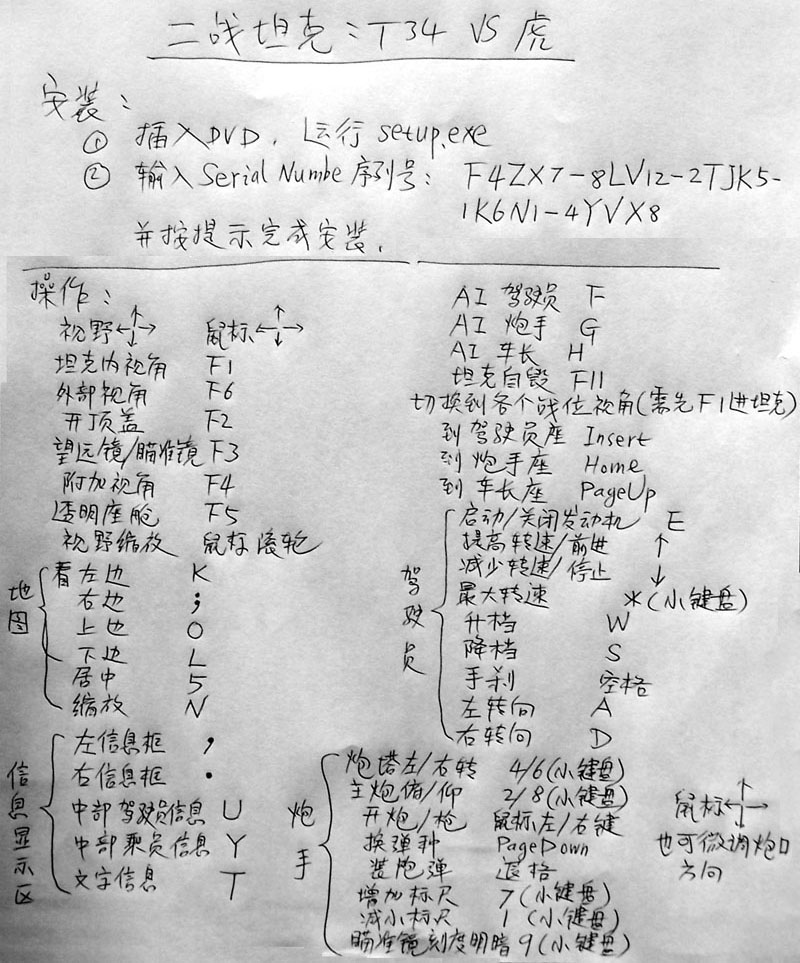 二战坦克：T34 VS 虎
安装：
① 插入DVD，运行 setup.exe
② 输入 Serial Numbe 序列号： F4ZX7-8LV12-2TJK5-
1K6N1-4YVX8
并按提示完成安装.
操作：
视野←↑↓→ 鼠标←↑↓→
坦克内视角 F1
外部视角 F6
开顶盖 F2
望远镜/瞄准镜 F3
附加视角 F4
透明座舱 F5
视野缩放 鼠标滚轮
地图
看左边 K
右边 ;
上边 O
下边 L
居中 5
缩放 N
信息显示区
左信息框 ,
右信息框 .
中部驾驶员信息 U
中部乘员信息 Y
文字信息 T
AI 驾驶员 F
AI 炮手 G
AI 车长 H
坦克自毁 F11
切换到各个战位视角(需先F1进坦克)
到驾驶员座 Insert
到炮手座 Home
到车长座 PageUp
驾驶员
启动/关闭发动机 E
提高转速/前进 ↑
减少转速/停止 ↓
最大转速 *(小键盘)
升档 W
降档 S
手刹 空格
左转向 A
右转向 D
炮手
炮塔左/右转 4/6(小键盘)
主炮俯/仰 2/8(小键盘)
开炮/枪 鼠标左/右键
换弹种 PageDown
装炮弹 退格
增加标尺 7(小键盘)
减小标尺 1(小键盘)
瞄准镜刻度明暗 9(小键盘)
鼠标←↑↓→
也可微调炮口
方向